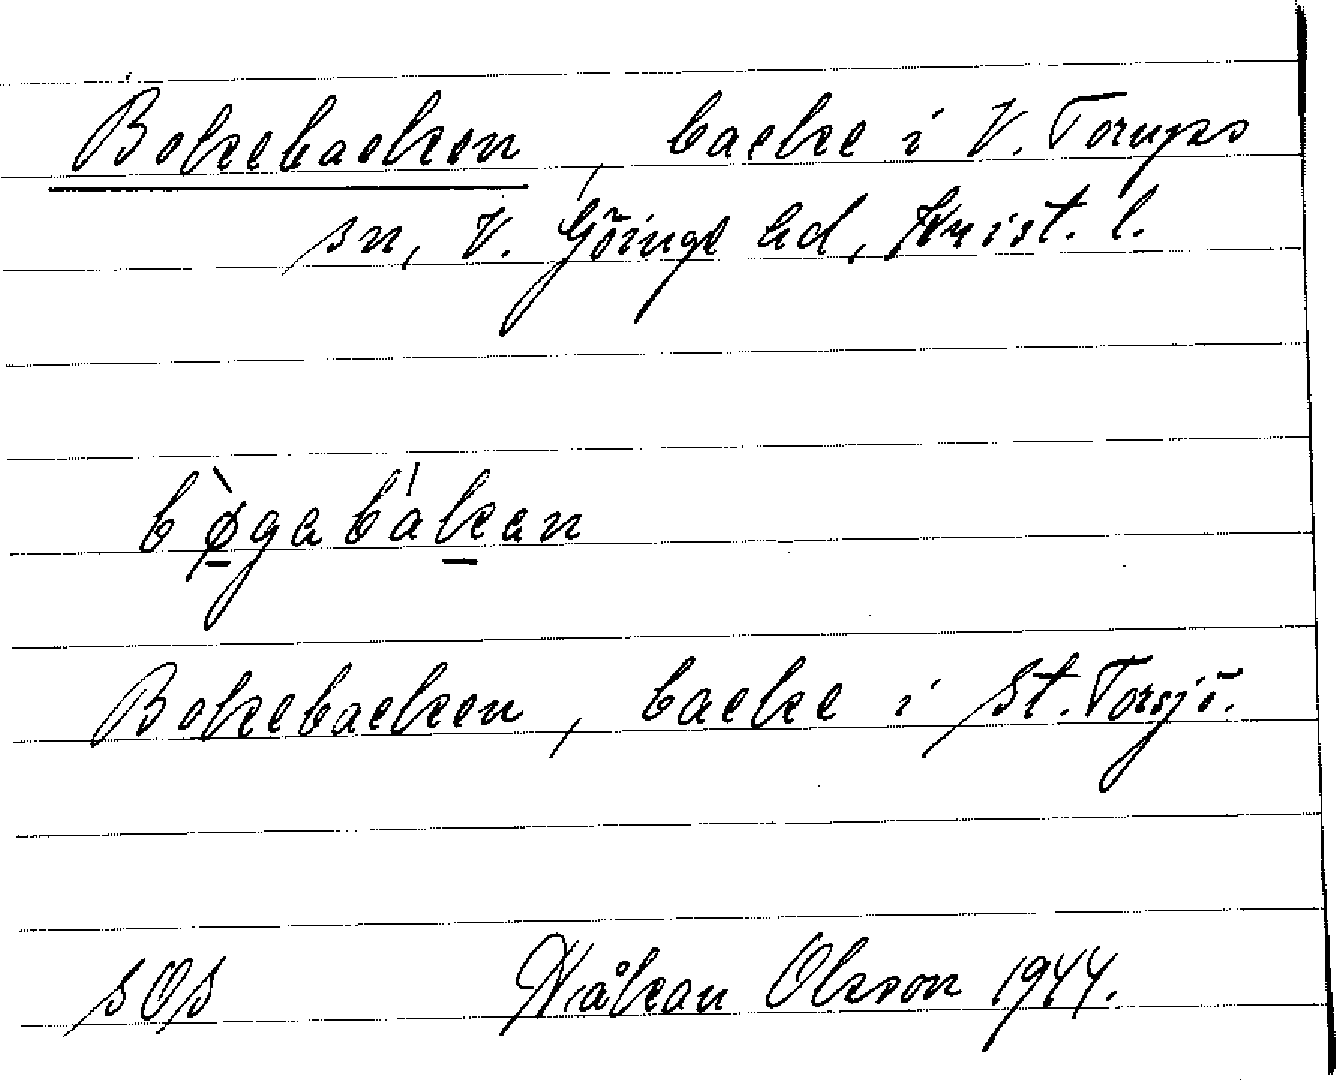 Bokebacken, backe i V. Torups
sn, V. Göinge hd, Krist. l.
bø̀gabákan
Bokebacken, backe i St. Torsjö.
SOS Håkan Olsson 1944.